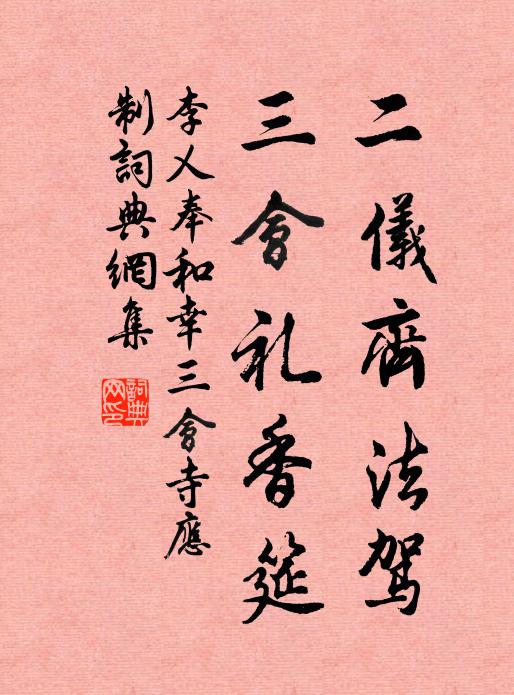 二儀齊法駕
三會礼香筵
李乂奉和幸三會寺應
制詞典網集
詞典网印